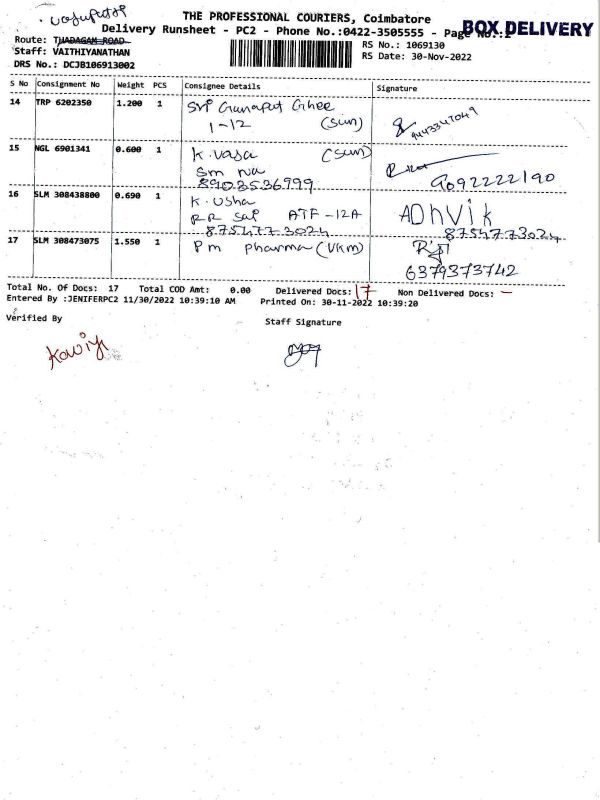 THE PROFESSIONAL COURIERS, Coimbatore
Delivery Runsheet - PC2 - Phone No.:0422-3505555 - Page No.:2
BOX DELIVERY
Route: THADAGAM ROAD
Staff: VAITHIYANATHAN
DRS No.: DCJB106913002
RS No.: 1069130
RS Date: 30-Nov-2022
S No Consignment No Weight PCS Consignee Details Signature
14 TRP 6202350 1.200 1 Sri Ganapat Ghee
1-12 (Sun) 9443347049
15 NGL 6901341 0.600 1 K. vasa (Sun)
Sm na
8903536999 9092222190
16 SLM 308438800 0.690 1 K. Usha
RR Sai ATF-12A ADhVik
8754773024 8754773024
17 SLM 308473075 1.550 1 Pm pharma (VKM)
6379373742
Total No. Of Docs: 17 Total COD Amt: 0.00 Delivered Docs: 17 Non Delivered Docs: -
Entered By :JENIFERPC2 11/30/2022 10:39:10 AM Printed On: 30-11-2022 10:39:20
Verified By Staff Signature